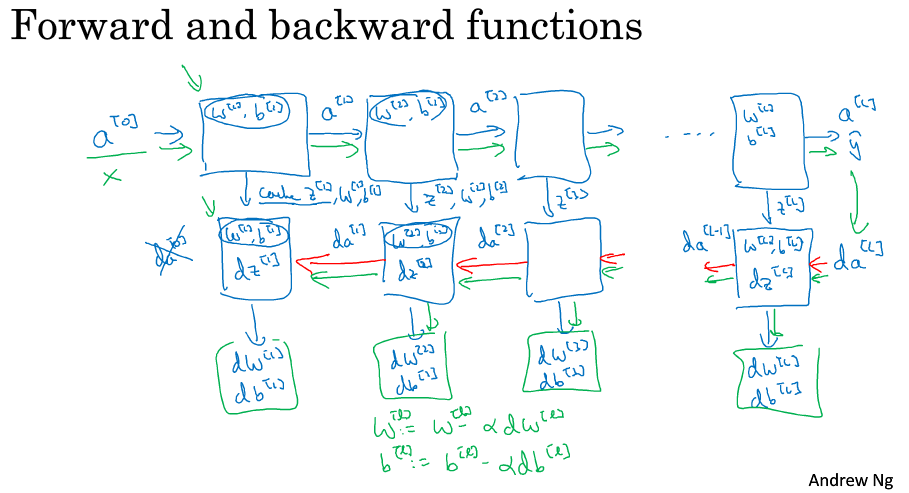 Forward and backward functions
a^[0] x
w^[1], b^[1] a^[1] w^[2], b^[2] a^[2] .... w^[L] b^[L] a^[L] ŷ
cache z^[1], w^[1], b^[1] z^[2], w^[2], b^[2] z^[3] z^[L]
da^[0] w^[1], b^[1] dz^[1] da^[1] w^[2], b^[2] dz^[2] da^[2] da^[L-1] w^[L], b^[L] dz^[L] da^[L]
dw^[1] dw^[2] dw^[3] dw^[L]
db^[1] db^[2] db^[3] db^[L]
w^[l] := w^[l] - αdw^[l]
b^[l] := b^[l] - αdb^[l]
Andrew Ng